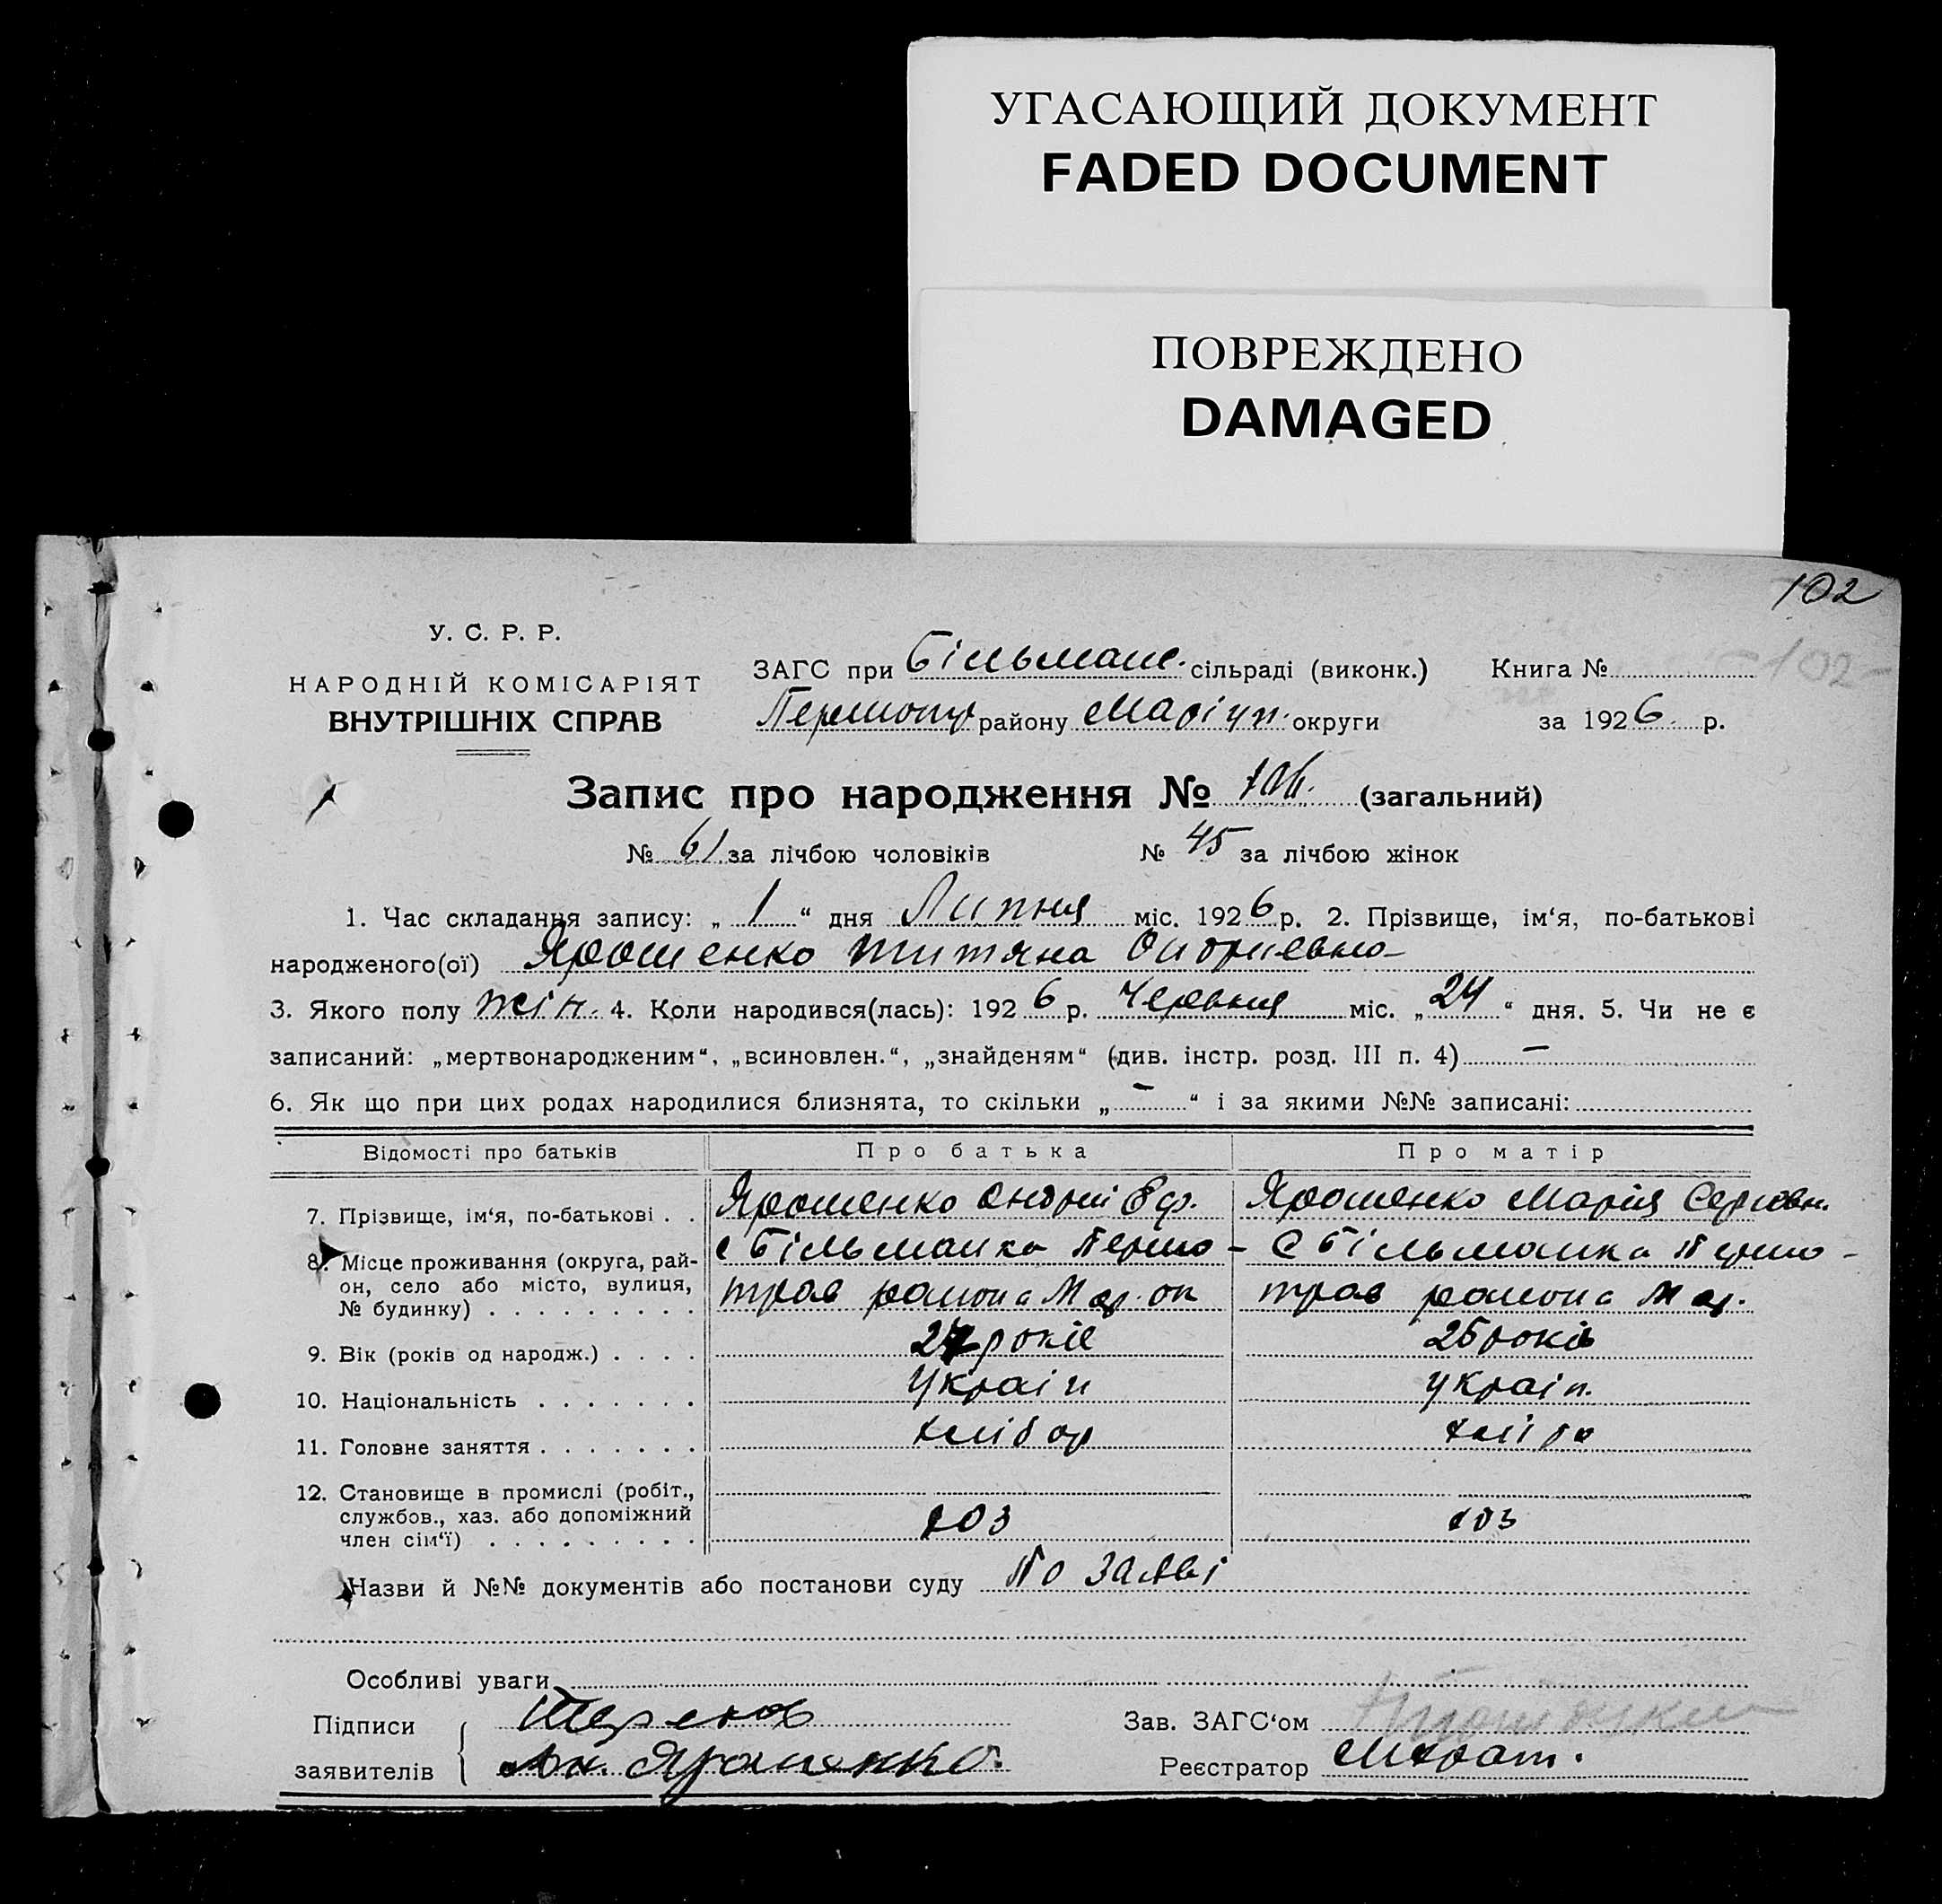 УГАСАЮЩИЙ ДОКУМЕНТ
FADED DOCUMENT
ПОВРЕЖДЕНО
DAMAGED
102
У. С. Р. Р.
НАРОДНІЙ КОМІСАРІЯТ
ВНУТРІШНІХ СПРАВ
ЗАГС при Більманс. сільраді (виконк.) Книга № 102
району Маріуп. округи за 1926 р.
Запис про народження № 106. (загальний)
№ 61 за лічбою чоловіків № 45 за лічбою жінок
1. Час складання запису: „ 1 “ дня Липня міс. 1926 р. 2. Прізвище, ім‘я, по-батькові
народженого(ої) Ярошенко Титяна
3. Якого полу жін. 4. Коли народився(лась): 1926 р. Червня міс. „ 24 “ дня. 5. Чи не є
записаний: „мертвонародженим“, „всиновлен.“, „знайденям“ (див. інстр. розд. III п. 4) –
6. Як що при цих родах народилися близнята, то скільки „ – “ і за якими №№ записані:
Відомості про батьків Про батька Про матір
7. Прізвище, ім‘я, по-батькові . . Ярошенко Андрій Єф. Ярошенко Марія Сергіевн.
8. Місце проживання (округа, рай-
он, село або місто, вулиця,
№ будинку) . . . . . . . . .
с Більманка Першо- С Більманка Першо-
трав района Мар. ок трав района Мар.
9. Вік (років од народж.) . . . . 27 років 25 років
10. Національність . . . . . . . Україн україн.
11. Головне заняття . . . . . . . хлібор хлібо
12. Становище в промислі (робіт.,
службов., хаз. або допоміжний
член сім‘ї) . . . . . . . . .
хоз хоз
Назви й №№ документів або постанови суду По заяві
Особливі уваги
Підписи
заявителів Ан. Ярошенко.
Зав. ЗАГС‘ом
Реєстратор